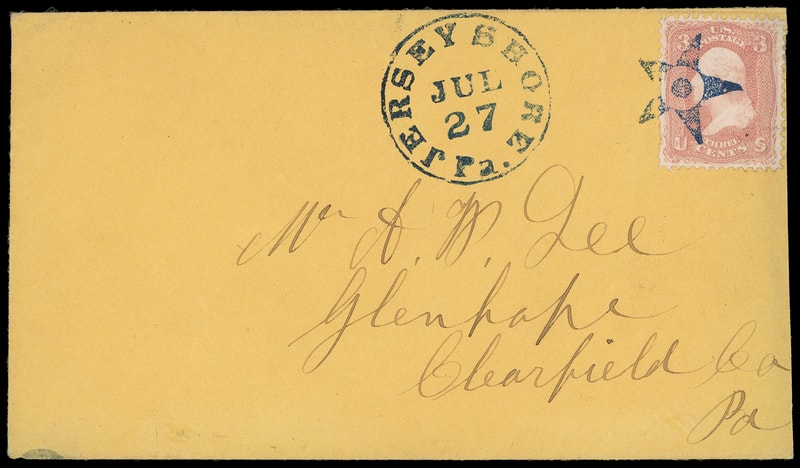 JERSEY SHORE Pa.
JUL
27
U.S.
POSTAGE
3 3
THREE
CENTS
U S
Mr A. W. Lee
Glenhope
Clearfield Co
Pa